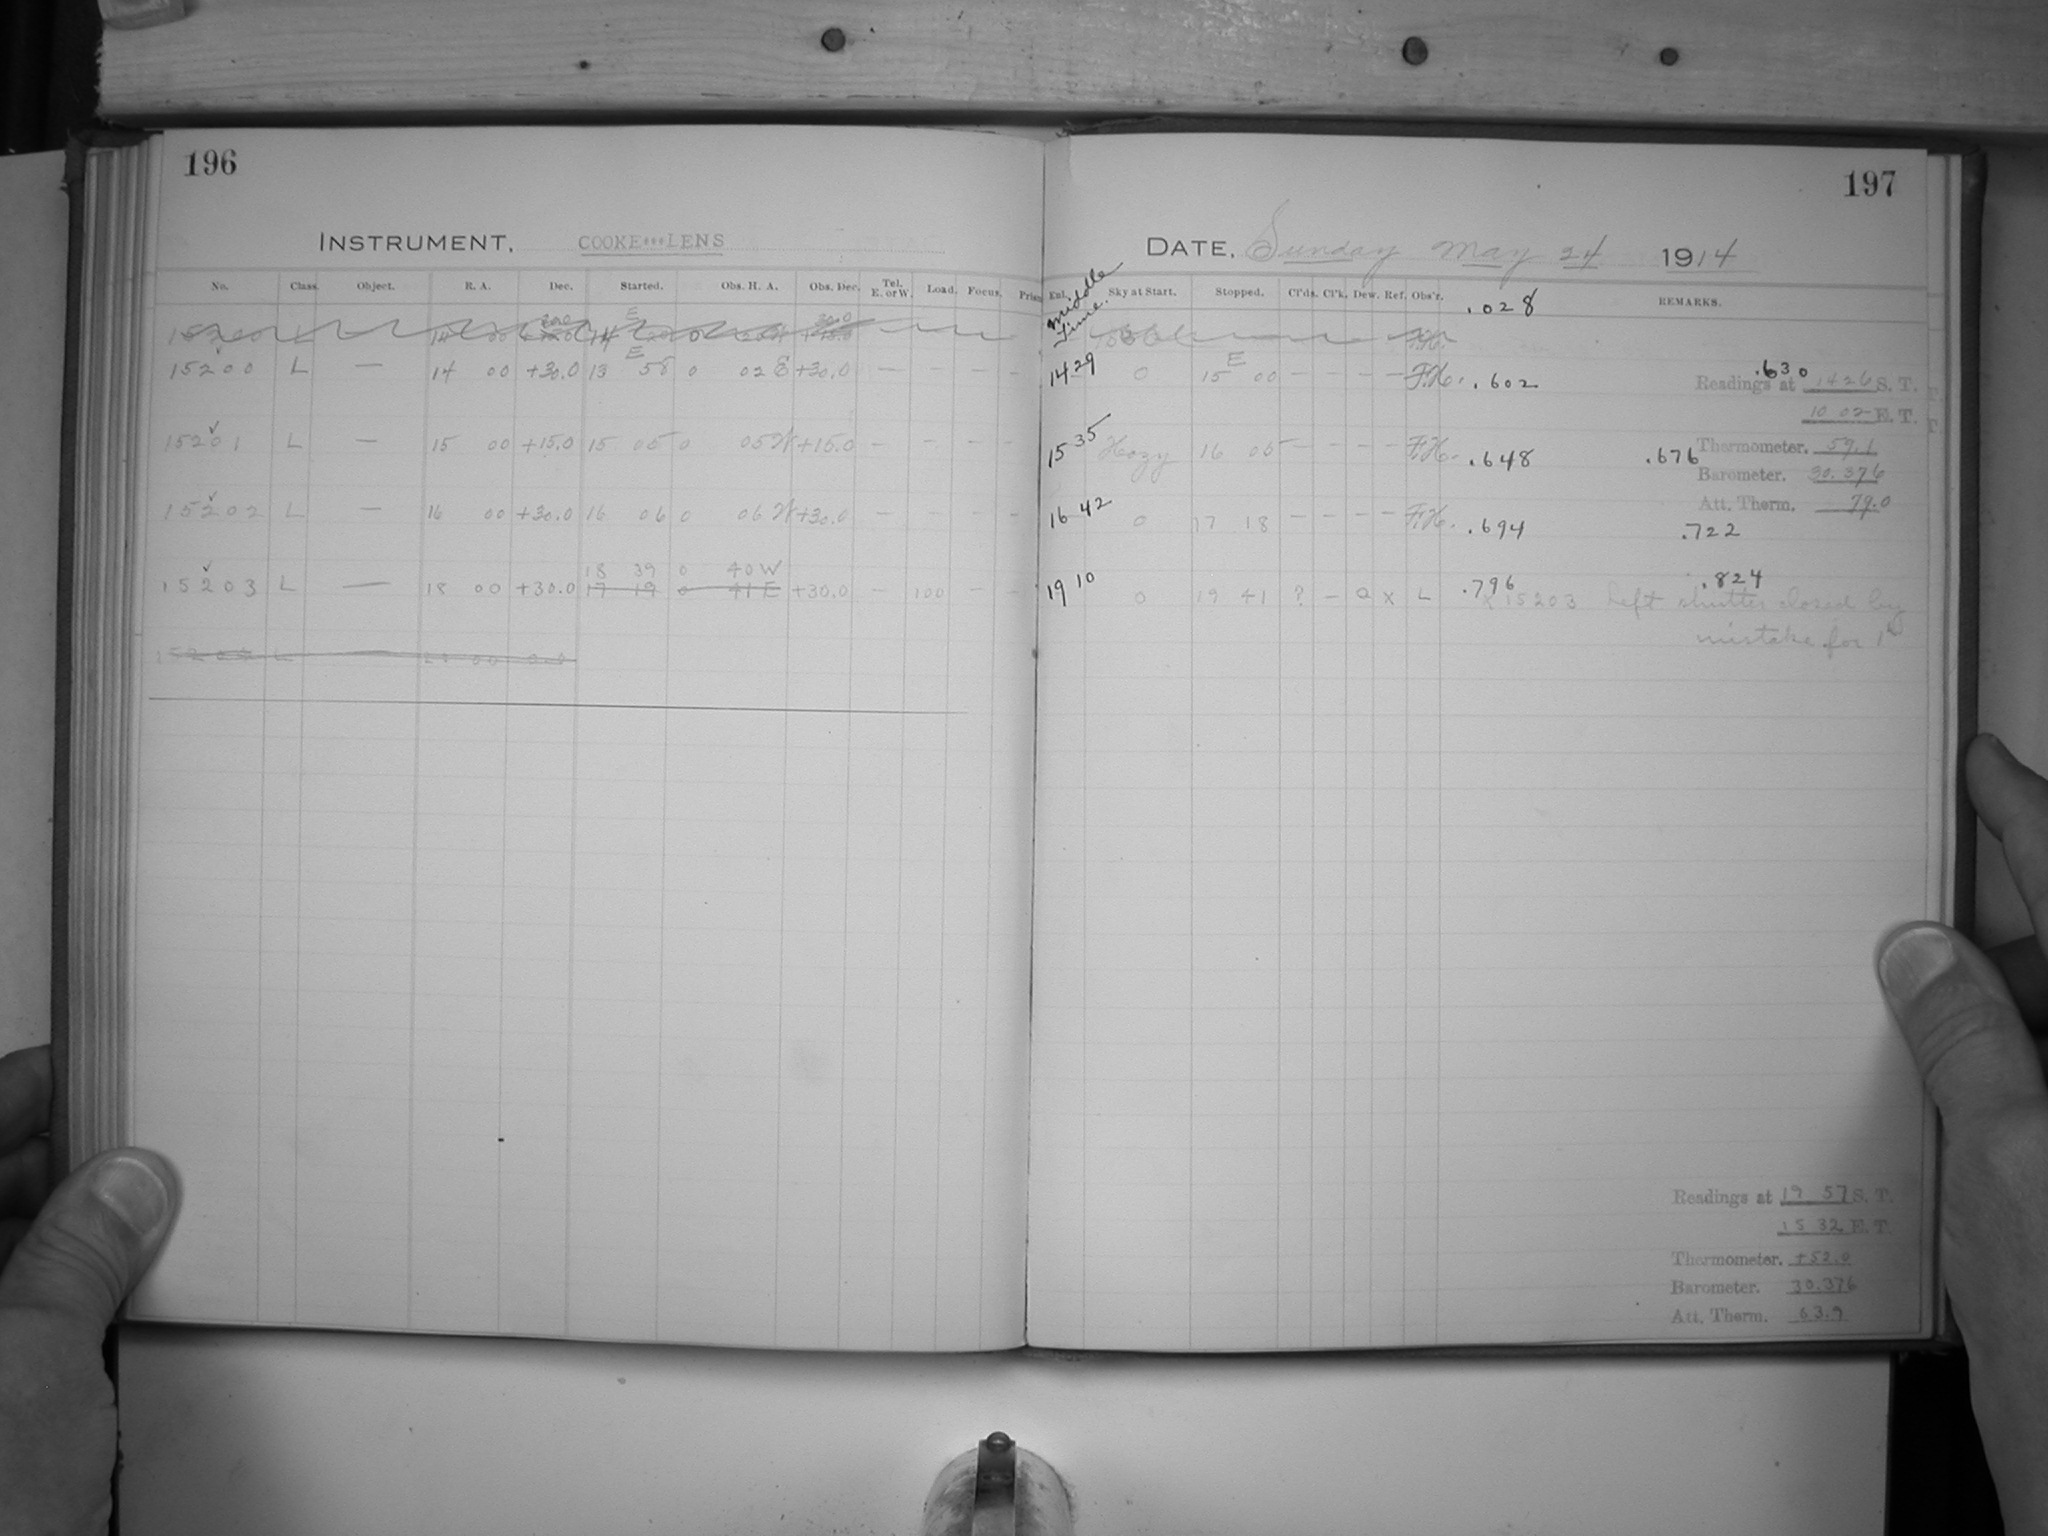 196
197
INSTRUMENT, COOKE LENS
DATE, Sunday May 24 1914
No. Class. Object. R. A. Dec. Started. Obs. H. A. Obs. Dec. Tel. E. or W. Load. Focus. Enl. Sky at Start. Stopped. Cl'ds. Cl'k. Dew. Ref. Obs'r. REMARKS.
middle Time. .028
E
15200 L — 14 00 +30.0 13 58 0 02 E +30.0 — — — — 14 29 0 15 00 — — — — F.H. .602 .630
E
15201 L — 15 00 +15.0 15 05 0 05 W +15.0 — — — — 15 35 Hazy 16 05 — — — — F.H. .648 .676
15202 L — 16 00 +30.0 16 06 0 06 W +30.0 — — — — 16 42 0 17 18 — — — — F.H. .694 .722
18 39 0 40 W
15203 L — 18 00 +30.0 17 19 0 41 E +30.0 — 100 — — 19 10 0 19 41 ? — a x L .796 .824
x 15203 Left shutter closed by
mistake for 1
Readings at 14 26 S. T.
10 02 E. T.
Thermometer. 59.1
Barometer. 30.376
Att. Therm. 79.0
Readings at 19 57 S. T.
15 32 E. T.
Thermometer. +52.0
Barometer. 30.376
Att. Therm. 63.9